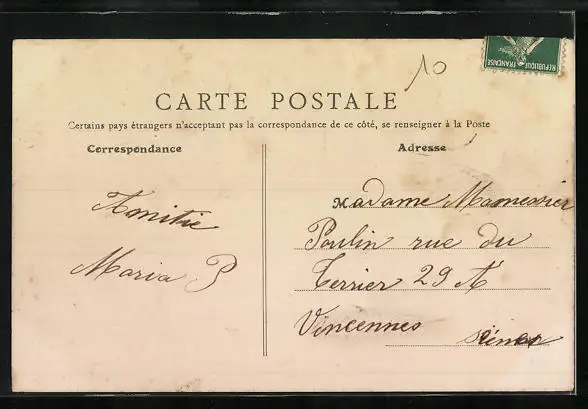 REPUBLIQUE FRANÇAISE
10
CARTE POSTALE
Certains pays étrangers n'acceptant pas la correspondance de ce côté, se renseigner à la Poste
Correspondance
Adresse
Amitie
Maria P
Madame Mamessier
Poulin rue du
Terrier 29 A
Vincennes
Seine